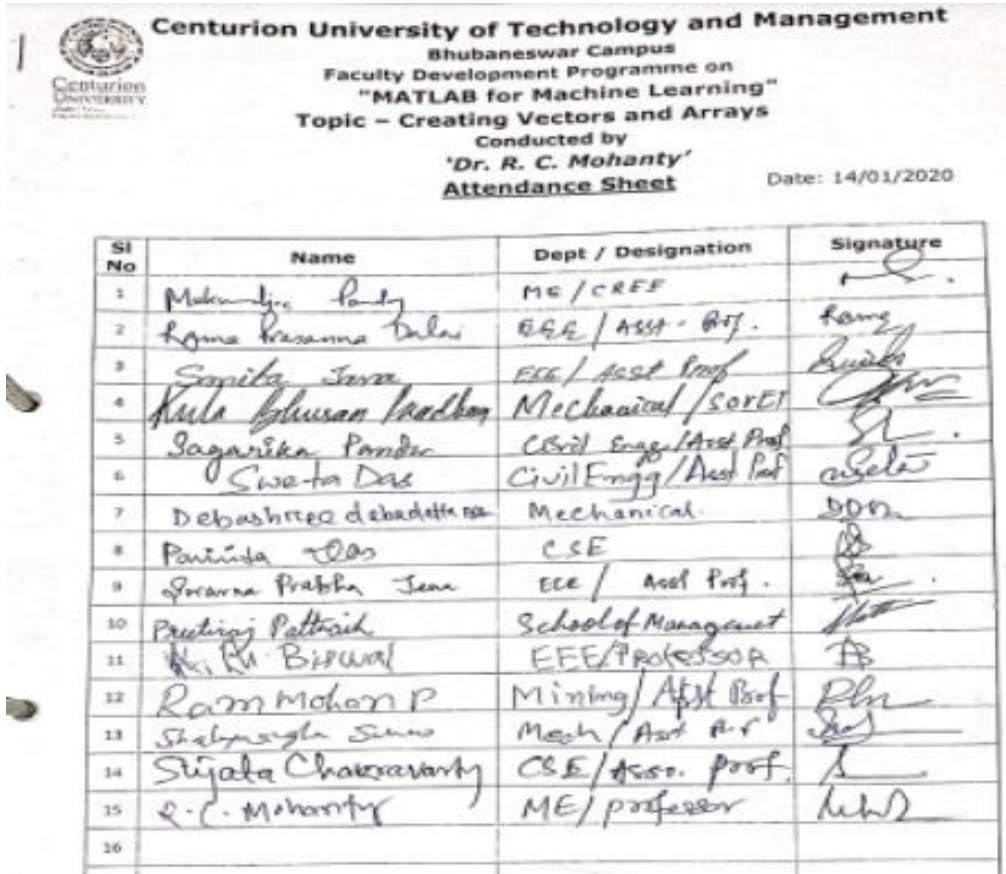 Centurion University of Technology and Management
Bhubaneswar Campus
Centurion
UNIVERSITY
Faculty Development Programme on
"MATLAB for Machine Learning"
Topic – Creating Vectors and Arrays
Conducted by
'Dr. R. C. Mohanty'
Attendance Sheet Date: 14/01/2020
Sl No Name Dept / Designation Signature
1 ME / CREE
2 Rama Prasanna Dalai EEE / Asst. Prof. Rama
3 Smita Jena ECE / Asst Prof
4 Kula Bhusan Pradhan Mechanical / SOVET
5 Sagarika Panda Civil Engg. / Asst Prof
6 Sweta Das Civil Engg / Asst Prof Sweta
7 Debashree debadatta Mechanical.
8 Das CSE
9 Suvarna Prabha Jena ECE / Asst Prof.
10 Pritiraj Pattnaik School of Management
11 Biswal EEE/PROFESSOR
12 Ram Mohan P Mining / Asst Prof
13 Mech / Asst Prof
14 Sujata Chakravarty CSE / Asso. Prof.
15 R. C. Mohanty ME / professor
16